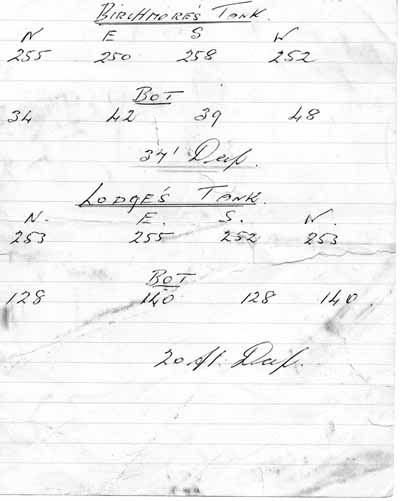 BIRCHMORE'S TANK.
N E S W
255 250 258 252
BOT
34 42 39 48
34' Deep.
LODGE'S TANK.
N. E. S. W.
253 255 252 253
BOT
128 140 128 140.
20 ft. Deep.